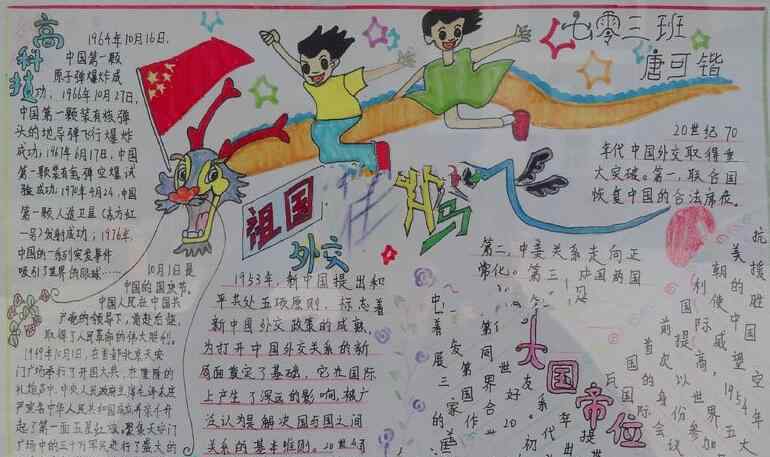 高科技
1964年10月16日,
中国第一颗
原子弹爆炸成
功,1966年10月27日,
中国第一颗装有核弹
头的地导弹飞行爆炸
成功,1967年6月17日,中国
第一颗装有氢弹空爆试
验成功,1970年4月24,中国
第一颗人造卫星(东方红
一号)发射成功,1976年,
中国的一系列突发事件
吸引了世界的眼球……
10月1日是
中国的国庆节,
中国人民在中国共
产党的领导下,前赴后继,
取得了人民革命的伟大胜利。
1949年10月1日,在首都北京天安
门广场举行了开国大典,在隆隆的
礼炮声中,中央人民政府主席毛泽东庄
严宣告中华人民共和国成立并亲手升
起了第一面五星红旗。聚集天安门
广场中的三十万军民进行了盛大的
祖国
外交
1953年,新中国提出和
平共处五项原则,标志着
新中国外交政策的成熟,
为打开中国外交关系的新
局面奠定了基础,它在国际
上产生了深远的影响,被广
泛认为是解决国与国之间
关系的基本准则。20世纪
七零三班
唐可锴
20世纪70
年代中国外交取得重
大突破。第一,联合国
恢复中国的合法席位。
第二,中美关系走向正
常化。第三,中国
大国帝位
抗美援
朝的胜
利使中国
国际威望空
前提高,1954年
首次以世界五大
国的身份参加
国际会议